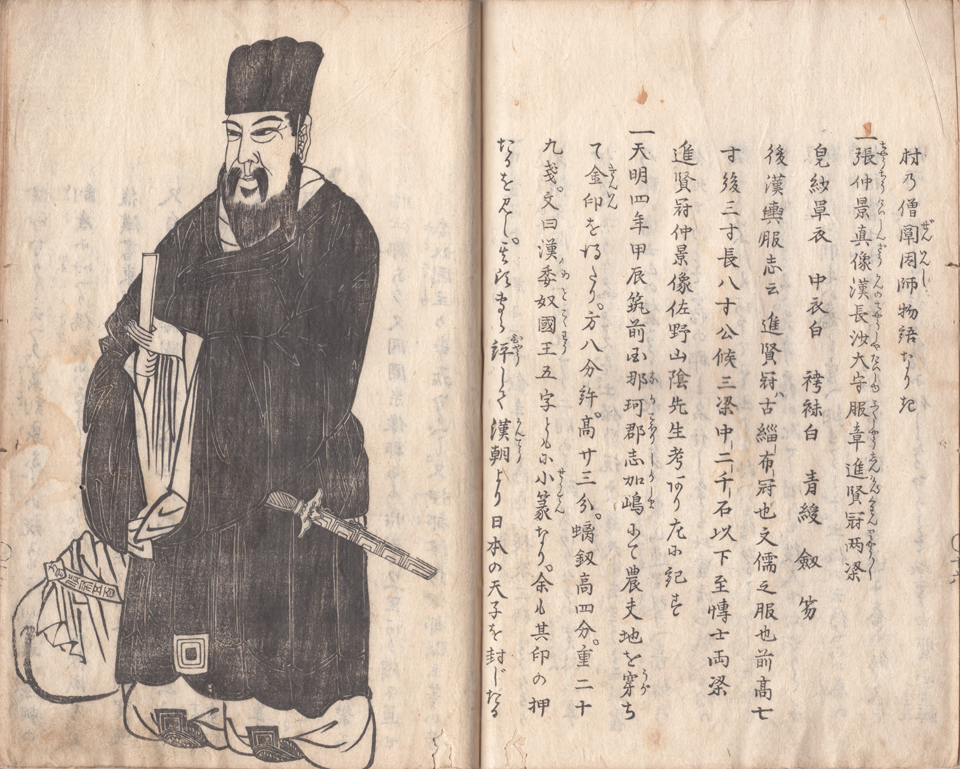 村乃僧闡固師物語なりき
一張仲景真像漢長沙大守服章進賢冠両梁
皂紗單衣 中衣白 袴袜白 青綬 劔 笏
後漢輿服志云 進賢冠ハ古緇布冠也文儒之服也前高七
寸後三寸長八寸公候三梁中二千石以下至愽士両梁
進賢冠仲景像佐野山陰先生考あり左に記す
一天明四年甲辰筑前国那珂郡志加嶋にて農夫地を穿ち
て金印を得たり。方八分許。高サ三分。螭釼高四分。重二十
九戔。文曰漢委奴國王五字ともに小篆なり。余も其印の押
たるを見し。世儒 評して漢朝より日本の天子を封じたる